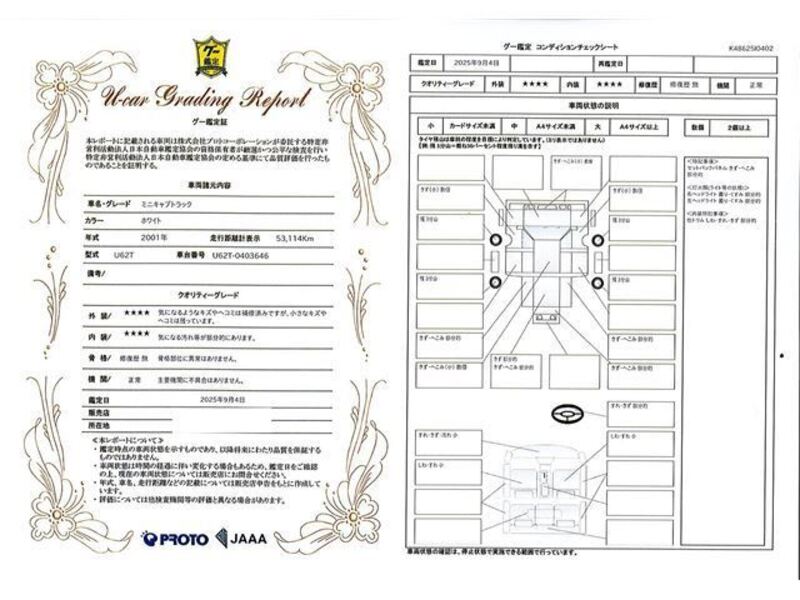 グー
鑑定
U-car Grading Report
グー鑑定証
本レポートに記載される車両は株式会社プロトコーポレーションが委託する特定非
営利活動法人日本自動車鑑定協会の資格保有者が厳選かつ公平な検査を行い
特定非営利活動法人日本自動車鑑定協会の定める基準にて品質評価を行ったも
のであることを証明する。
車両諸元内容
車名・グレード ミニキャブトラック
カラー ホワイト
年式 2001年 走行距離計表示 53,114Km
型式 U62T 車台番号 U62T-0403646
備考/
クオリティーグレード
外 装/ ★★★★ 気になるようなキズやヘコミは補修済みですが、小さなキズや
ヘコミは残っています。
内 装/ ★★★★ 気になる汚れ等が部分的にあります。
骨 格/ 修復歴 無 骨格部位に異常はありません。
機 関/ 正常 主要機関に不具合はありません。
鑑定日 2025年9月4日
販売店
所在地
≪本レポートについて≫
・鑑定時点の車両状態を示すものであり、以降将来にわたり品質を保証する
ものではありません。
・車両状態は時間の経過に伴い変化する場合もあるため、鑑定日をご確認
の上、現在の車両状態については販売店にお問合せください。
・年式、車名、走行距離などの記載については販売店申告をもとに作成して
います。
・評価については他検査機関等の評価と異なる場合があります。
PROTO JAAA
グー鑑定 コンディションチェックシート
K48625I0402
鑑定日 2025年9月4日 再鑑定日
クオリティーグレード 外装 ★★★★ 内装 ★★★★ 修復歴 修復歴 無 機関 正常
車両状態の説明
小 カードサイズ未満 中 A4サイズ未満 大 A4サイズ以上 数箇 2個以上
きず・へこみ(小) 数個
きず(小) 数個
きず(小) 数個
残 3分山
残 3分山
残 3分山
残 3分山
きず・へこみ 部分的
きず・へこみ 部分的
きず・へこみ(小) 数個
きず 部分的
きず・へこみ 部分的
きず・へこみ 部分的
すれ・きず 部分的
すれ・きず・汚れ 小
しわ・すれ 小
しわ・すれ 小
<特記事項>
セットバックパネル きず・へこみ
部分的
<灯火類(ライト等の状態)>
右ヘッドライト 曇り・くすみ 部分的
左ヘッドライト 曇り・くすみ 部分的
<内装特記事項>
車両状態の確認は、停止状態で実施できる範囲で行っています。